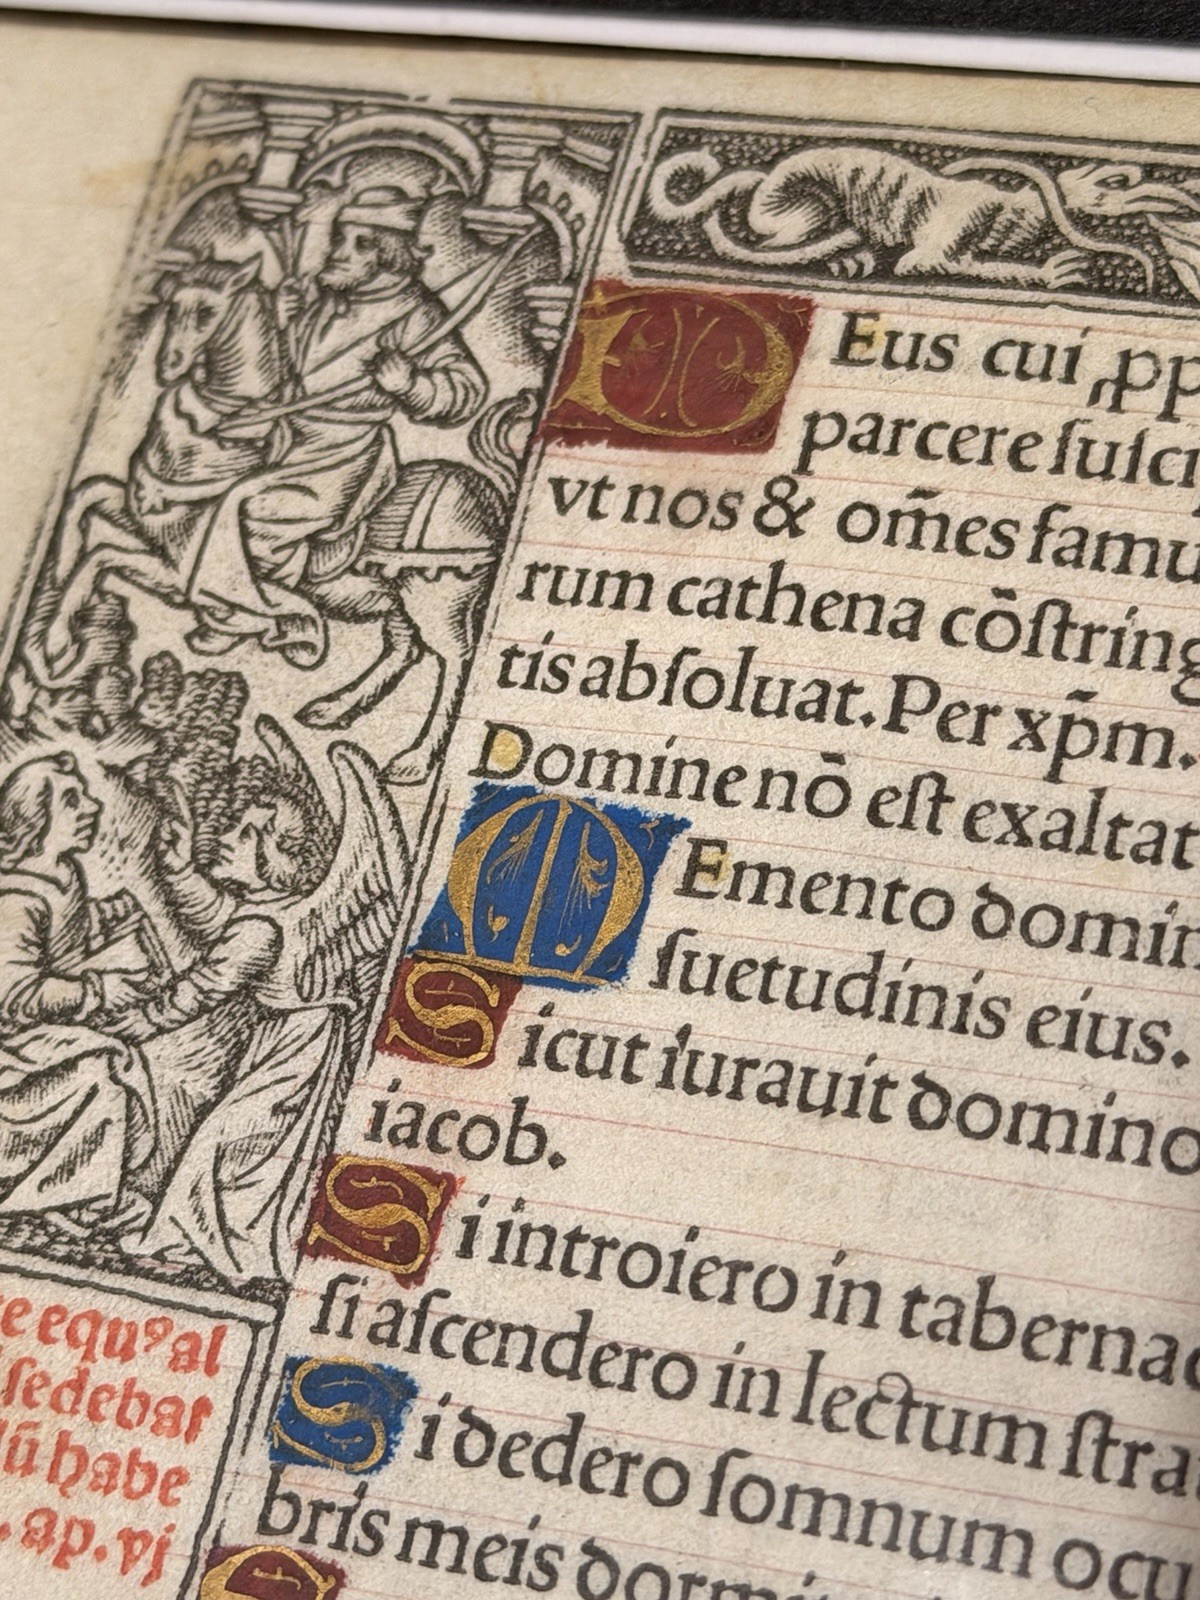 DEus cui ꝓp
parcere ſuſci
vt nos & om̃es famu
rum cathena cōſtring
tis abſoluat. Per xp̄m.
Domine nō eſt exaltat
MEmento domin
ſuetudinis eius.
Sicut iurauit domino
iacob.
Si introiero in taberna
ſi aſcendero in lectum ſtra
Si dedero ſomnum ocu
bris meis dormi
e equꝰ al
ſedebat
lū habe
. ap. vj